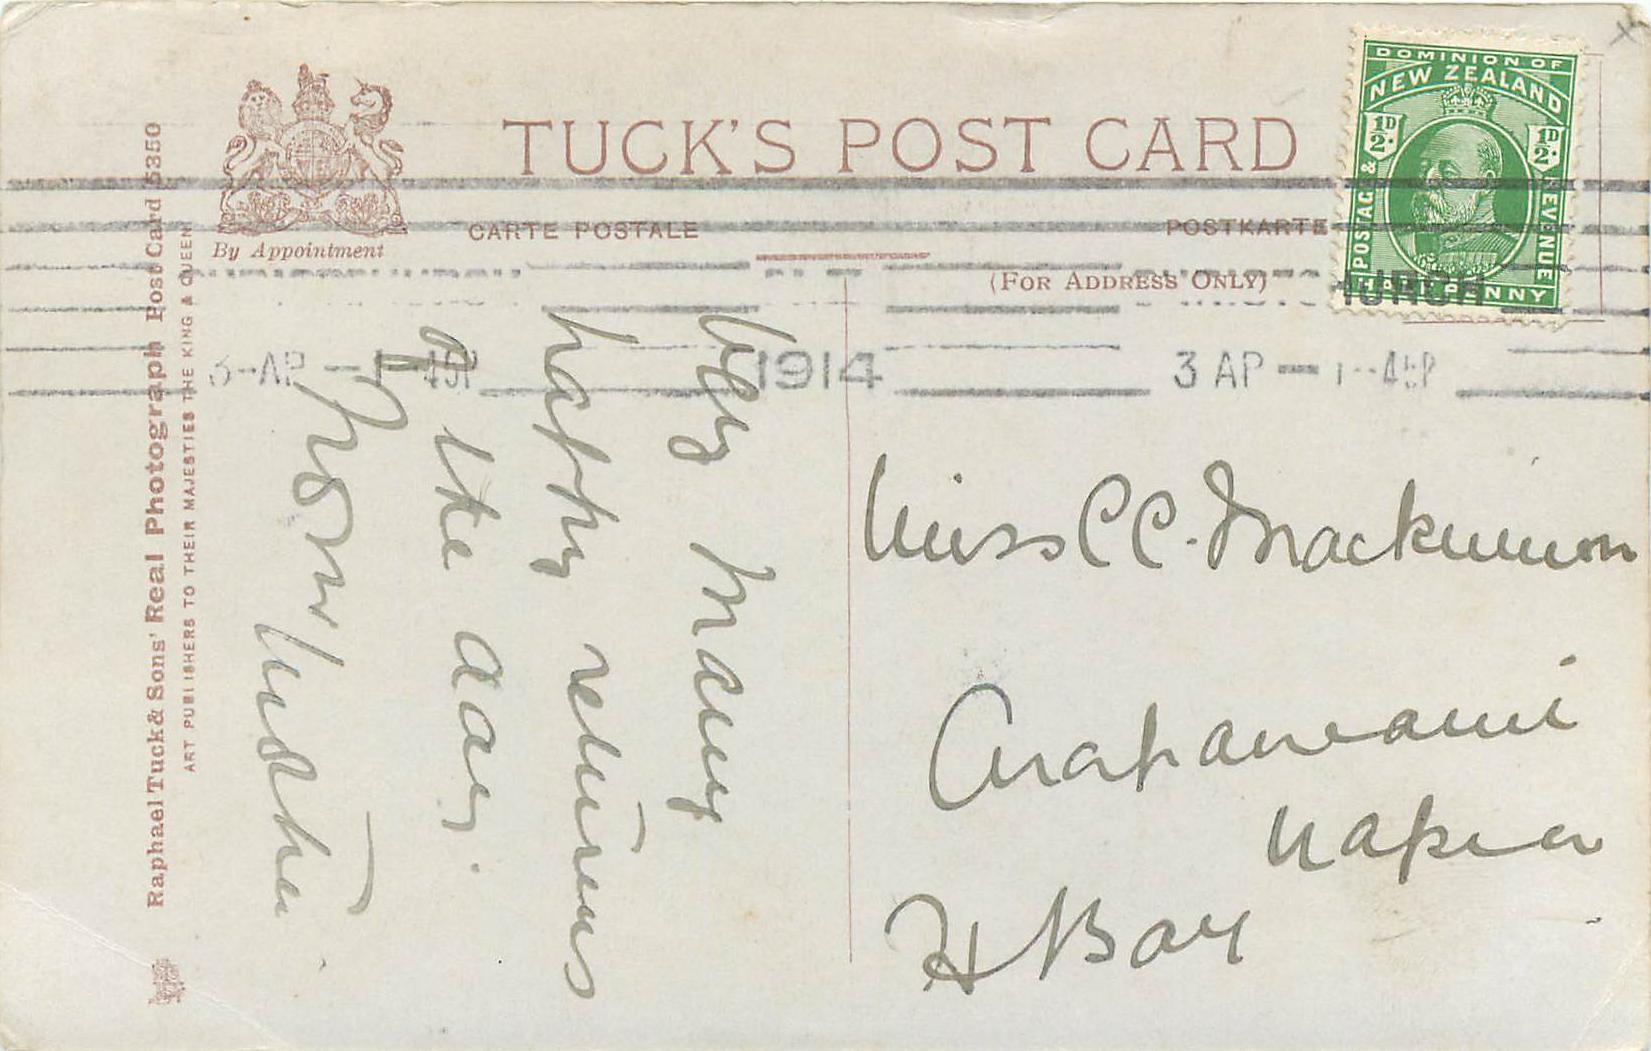 TUCK'S POST CARD
By Appointment
CARTE POSTALE
POSTKARTE
(FOR ADDRESS ONLY)
DOMINION OF
NEW ZEALAND
½D. ½D.
POSTAGE & REVENUE
HALF PENNY
CHRISTCHURCH
3-AP 1 -45P 1914
3 AP 1 -45P
Raphael Tuck & Sons' Real Photograph Post Card 5350
ART PUBLISHERS TO THEIR MAJESTIES THE KING & QUEEN
Very many
happy returns
of the day.
from
Miss C C. Mackinnon
Napier
H Bay